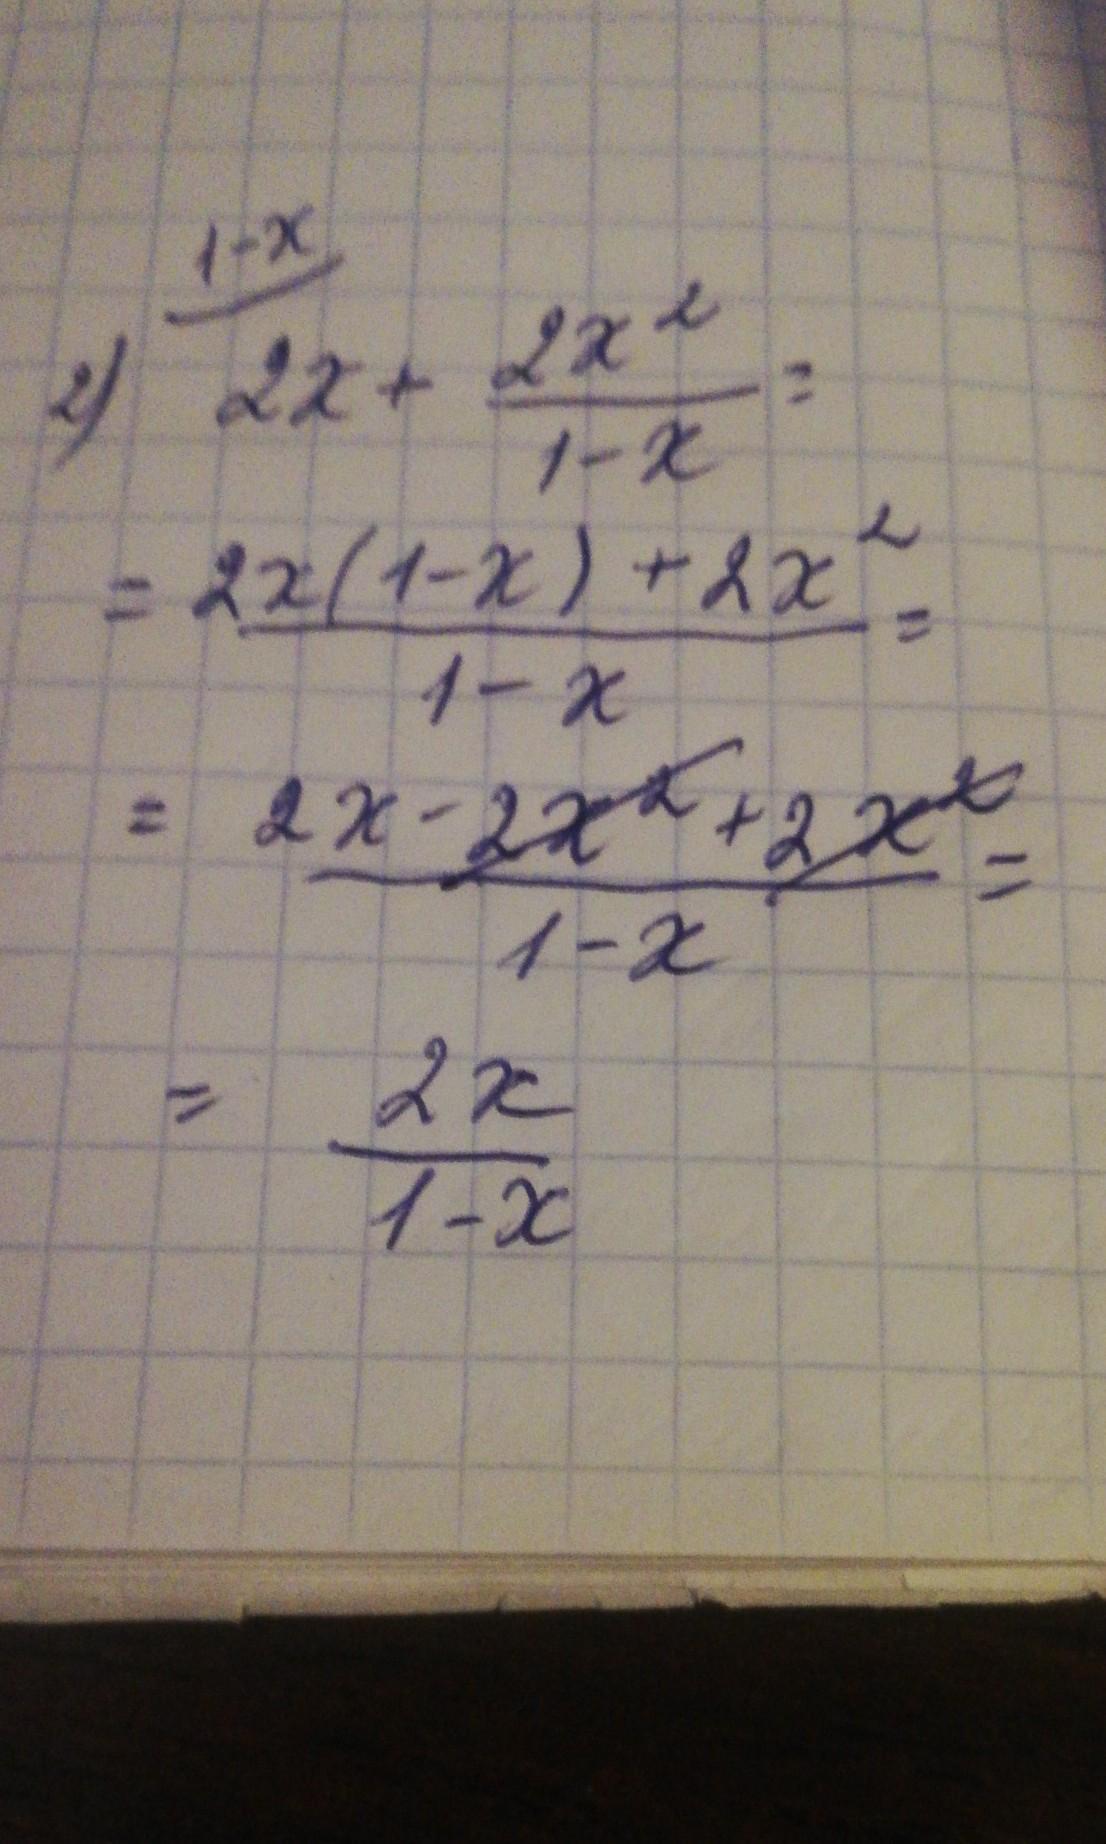 1-x
2) 2x + 2x²/(1-x) =
= (2x(1-x) + 2x²)/(1-x) =
= (2x - 2x² + 2x²)/(1-x) =
= 2x/(1-x)